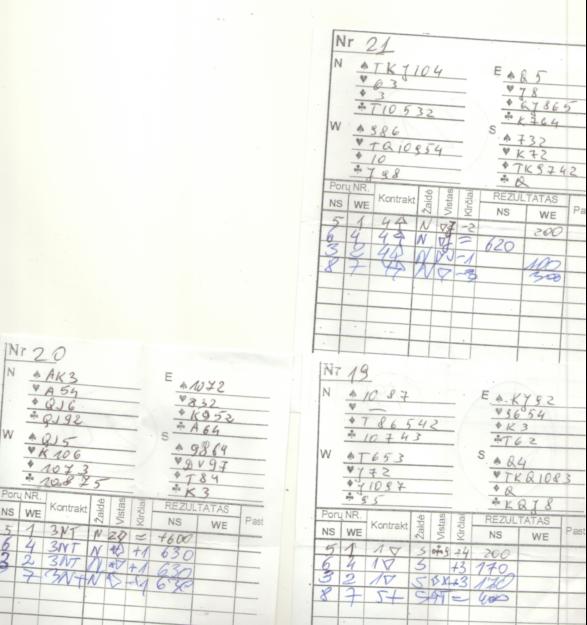 Nr 21
N
♠ TKJ104
♥ 63
♦ 3
♣ T10532
E
♠ Q5
♥ J8
♦ QJ865
♣ K764
W
♠ 986
♥ TQ10954
♦ 10
♣ J98
S
♠ 732
♥ K72
♦ TK9742
♣ Q
Porų NR. Kontrakt Žaidė Vistas Kirčiai REZULTATAS
NS WE NS WE Pa
5 1 4♠ N -2 200
6 4 4♠ N = 620
3 2 4♠ N -1 100
8 7 N -3 300
Nr 20
N
♠ AK3
♥ A54
♦ QJ6
♣ QJ92
E
♠ 1072
♥ 832
♦ K952
♣ A64
W
♠ QJ5
♥ K106
♦ 1073
♣ 10875
S
♠ 9864
♥ 97
♦ T84
♣ K3
Porų NR. Kontrakt Žaidė Vistas Kirčiai REZULTATAS
NS WE NS WE Past
5 1 3NT N = +600
6 4 3NT N +1 630
3 2 3NT N +1 630
7 3NT N
Nr 19
N
♠ 1087
♥ —
♦ T86542
♣ 10743
E
♠ KJ92
♥ 9654
♦ K3
♣ T62
W
♠ T653
♥ J72
♦ J1097
♣ 95
S
♠ Q4
♥ TKQ1083
♦ Q
♣ KQJ8
Porų NR. Kontrakt Žaidė Vistas Kirčiai REZULTATAS
NS WE NS WE Past
5 1 1♥ S +4 200
6 4 1♥ S +3 170
3 2 1♥ S +3 170
8 7 S = 400